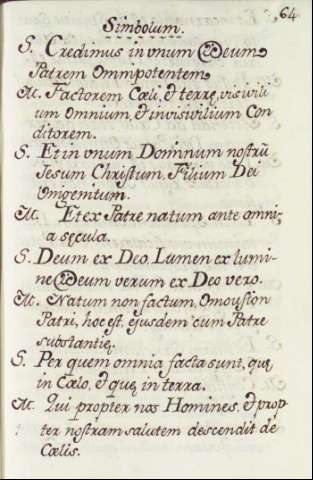 64
Simbolum.
S. Credimus in vnum Deum
Patrem Omnipotentem
M. Factorem Cœli, & terrę, visivili
um Omnium, & invisivilium Con
ditorem.
S. Et in vnum Dominum nostrũ
Jesum Christum, Filium Dei
Vnigenitum.
M. Et ex Patre natum ante omni-
a sęcula.
S. Deum ex Deo, Lumen ex lumi-
ne Deum verum ex Deo vero.
M. Natum non factum, Omousion
Patri, hoc est, ejusdem cum Patre
substantię.
S. Per quem omnia facta sunt, quę
in Cœlo, & quę in terra.
M. Qui propter nos Homines, & prop-
ter nostram salutem descendit de
Cœlis.